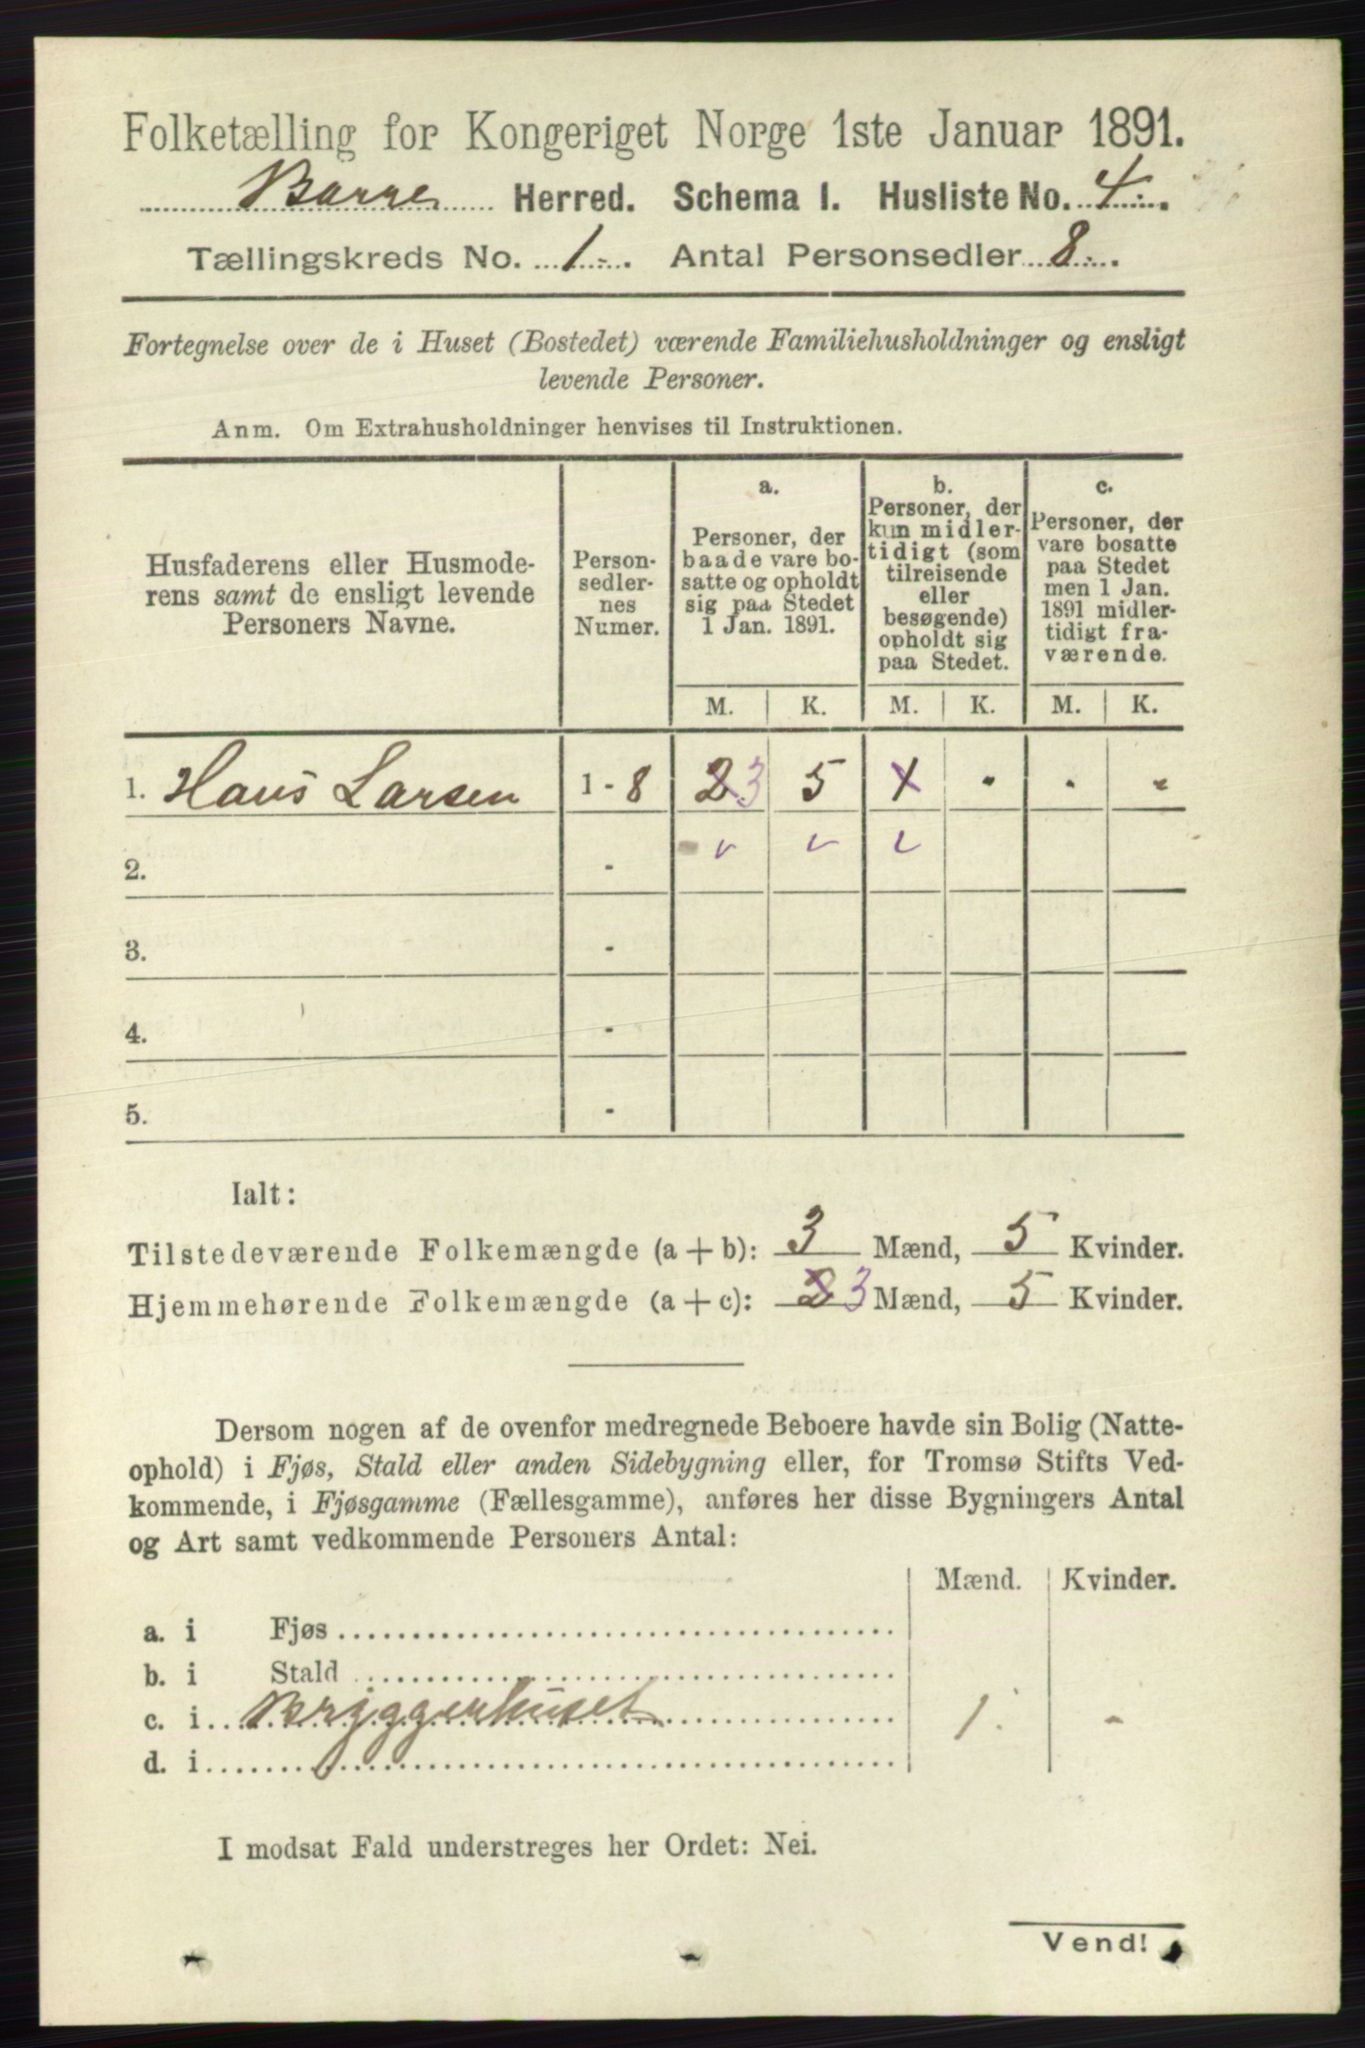 Folketælling for Kongeriget Norge 1ste Januar 1891.
Borre Herred. Schema I. Husliste No. 4.
Tællingskreds No. 1. Antal Personsedler 8.
Fortegnelse over de i Huset (Bostedet) værende Familiehusholdninger og ensligt
levende Personer.
Anm. Om Extrahusholdninger henvises til Instruktionen.
Husfaderens eller Husmode-
rens samt de ensligt levende
Personers Navne.
Person-
sedler-
nes
Numer.
a.
Personer, der
baade vare bo-
satte og opholdt
sig paa Stedet
1 Jan. 1891.
b.
Personer, der
kun midler-
tidigt (som
tilreisende
eller
besøgende)
opholdt sig
paa Stedet.
c.
Personer, der
vare bosatte
paa Stedet
men 1 Jan.
1891 midler-
tidigt fra-
værende.
M. K. M. K. M. K.
1. Hans Larsen 1 - 8 2 3 5 1 - - -
2. -
3. -
4. -
5. -
Ialt:
Tilstedeværende Folkemængde (a + b): 3 Mænd, 5 Kvinder.
Hjemmehørende Folkemængde (a + c): 2 3 Mænd, 5 Kvinder.
Dersom nogen af de ovenfor medregnede Beboere havde sin Bolig (Natte-
ophold) i Fjøs, Stald eller anden Sidebygning eller, for Tromsø Stifts Ved-
kommende, i Fjøsgamme (Fællesgamme), anføres her disse Bygningers Antal
og Art samt vedkommende Personers Antal:
Mænd. Kvinder.
a. i Fjøs
b. i Stald
c. i Bryggerhuset 1. -
d. i
I modsat Fald understreges her Ordet: Nei.
Vend!